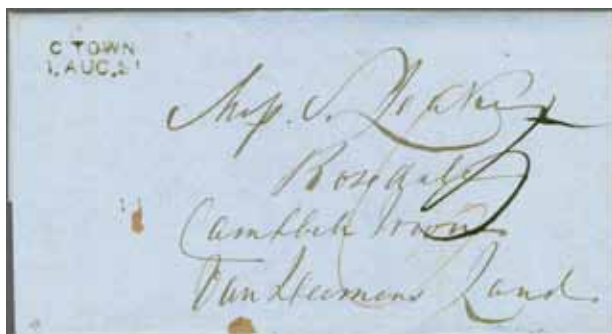 C TOWN
1. AUG. 51
Miss. S. Leake
Rosedale
Campbell Town
Van Diemens Land.